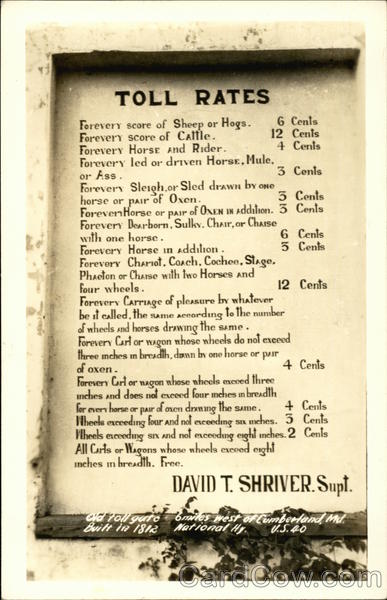 TOLL RATES
Forevery score of Sheep or Hogs. 6 Cents
Forevery score of Cattle. 12 Cents
Forevery Horse and Rider. 4 Cents
Forevery led or driven Horse, Mule,
or Ass. 3 Cents
Forevery Sleigh, or Sled drawn by one
horse or pair of Oxen. 3 Cents
Forevery Horse or pair of Oxen in addition. 3 Cents
Forevery Dearborn, Sulky, Chair, or Chaise
with one horse. 6 Cents
Forevery Horse in addition. 3 Cents
Forevery Chariot, Coach, Cochee, Stage,
Phaeton or Chaise with two Horses and
four wheels. 12 Cents
Forevery Carriage of pleasure by whatever
be it called, the same according to the number
of wheels and horses drawing the same.
Forevery Cart or wagon whose wheels do not exceed
three inches in breadth, drawn by one horse or pair
of oxen. 4 Cents
Forevery Cart or wagon whose wheels exceed three
inches and does not exceed four inches in breadth
for every horse or pair of oxen drawing the same. 4 Cents
Wheels exceeding four and not exceeding six inches. 3 Cents
Wheels exceeding six and not exceeding eight inches. 2 Cents
All Carts or Wagons whose wheels exceed eight
inches in breadth. Free.
DAVID T. SHRIVER. Supt.
Old toll gate 6 miles west of Cumberland, Md.
Built in 1812 National Hy. U.S. 40
CardCow.com